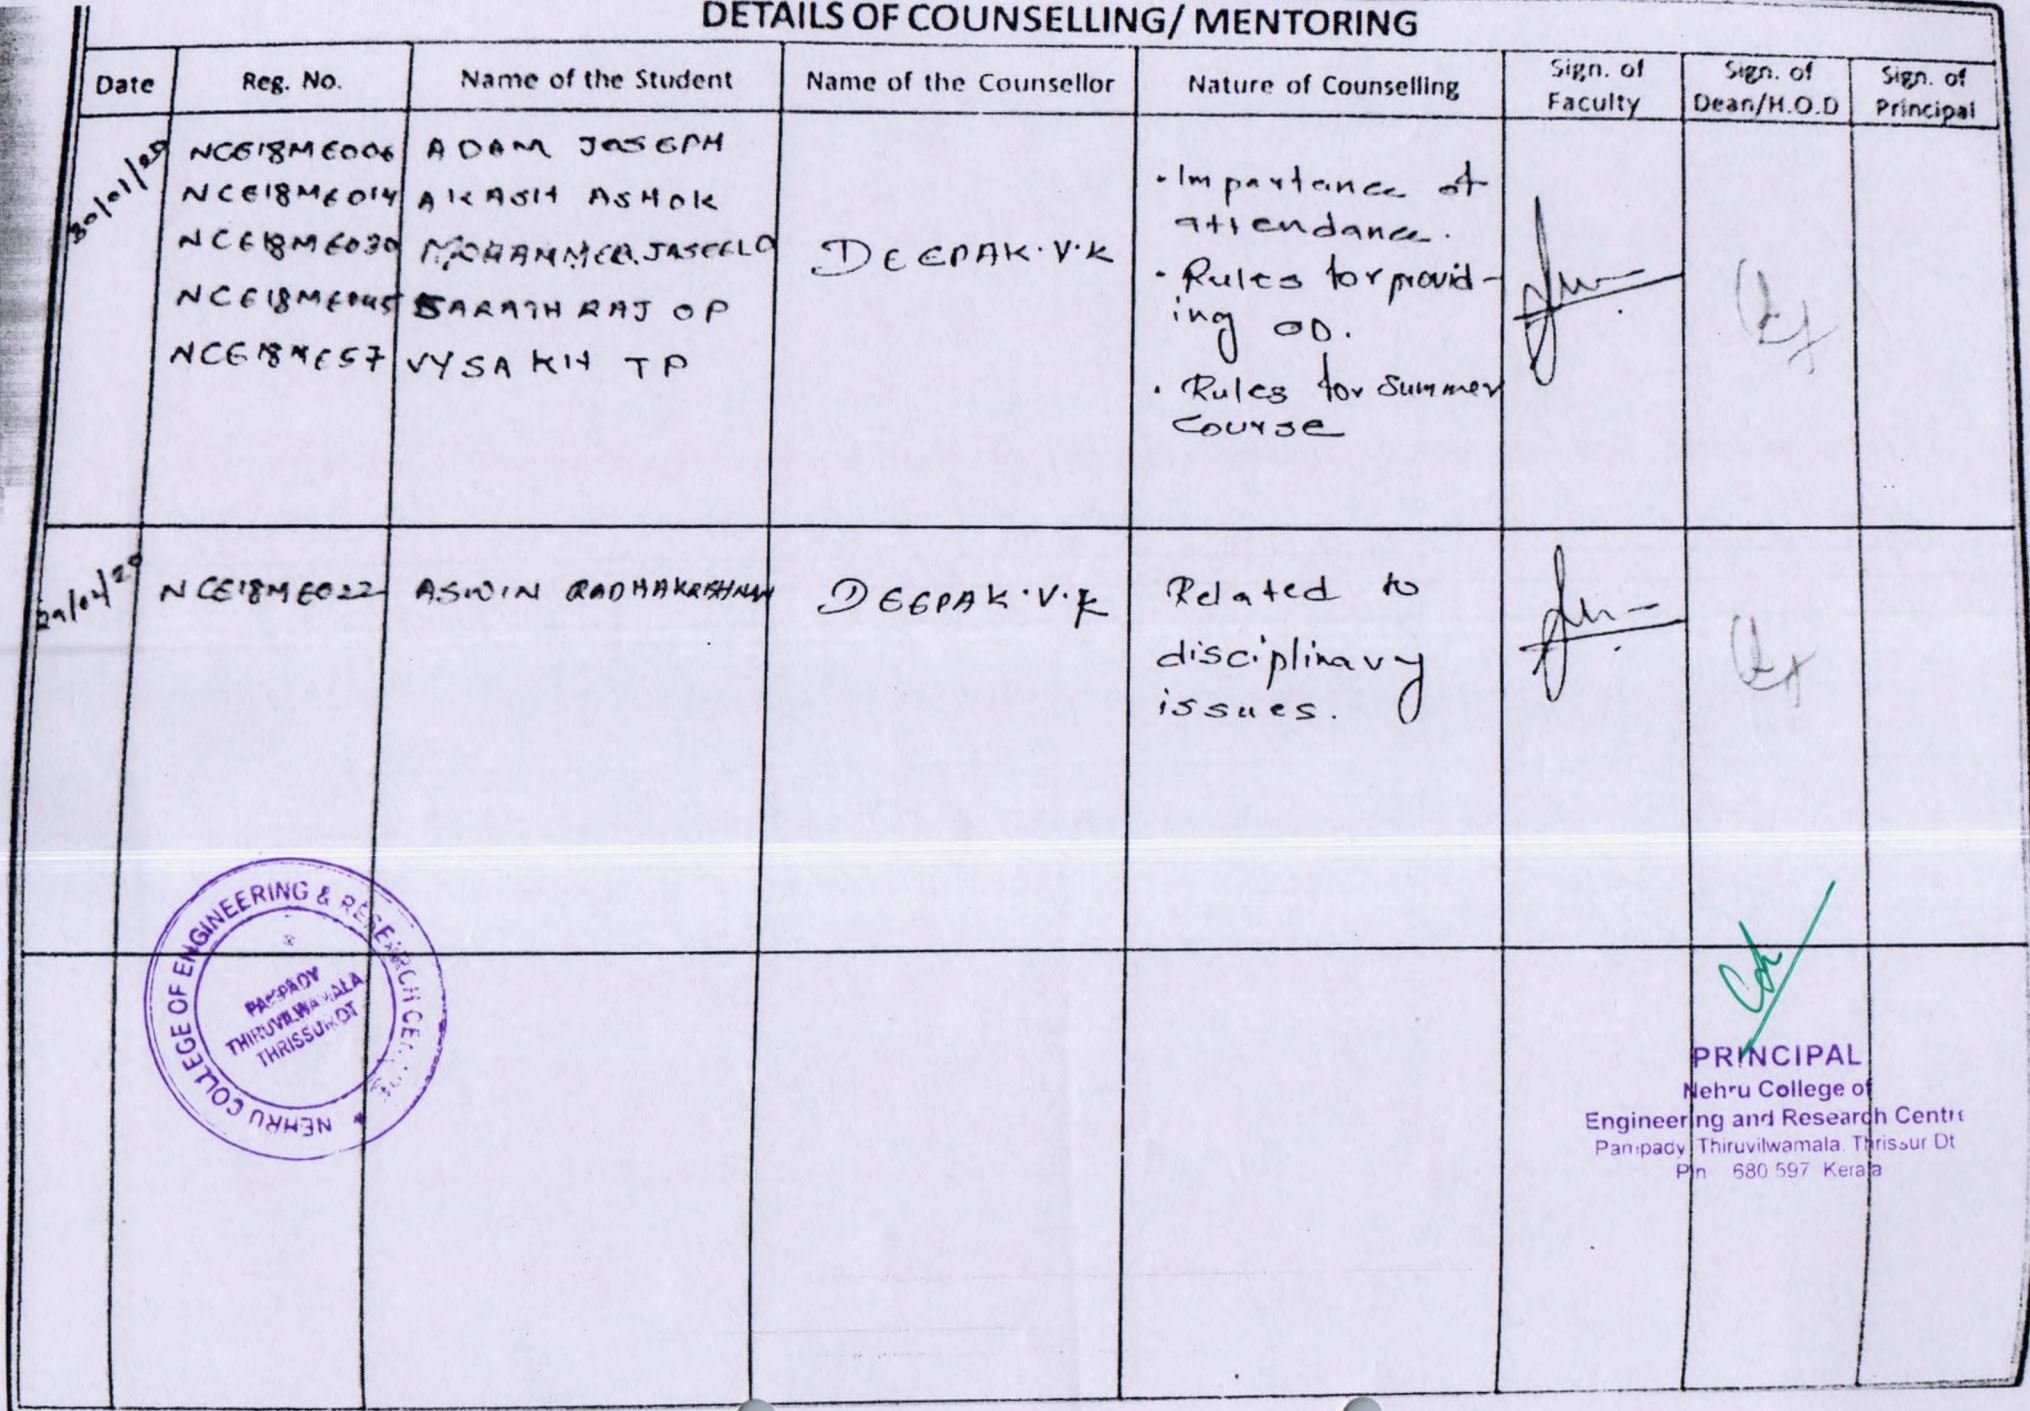 DETAILS OF COUNSELLING/ MENTORING
Date Reg. No. Name of the Student Name of the Counsellor Nature of Counselling Sign. of Faculty Sign. of Dean/H.O.D Sign. of Principal
30/01/20
NCE18ME006 ADAM JOSEPH
NCE18ME014 AKASH ASHOK
NCE18ME030 MOHAMMED JASEEL
NCE18ME045 SARATH RAJ OP
NCE18ME57 VYSAKH TP
DEEPAK.V.K
• Importance of
attendance.
• Rules for provid-
ing OD.
• Rules for Summer
Course
NCE18ME022 ASWIN RADHAKRISHNAN DEEPAK.V.K Related to
disciplinary
issues.
NEHRU COLLEGE OF ENGINEERING & RESEARCH
PAMPADY
THIRUVILWAMALA
THRISSUR DT
PRINCIPAL
Nehru College of
Engineering and Research Centre
Pampady Thiruvilwamala. Thrissur Dt
Pin 680 597 Kerala